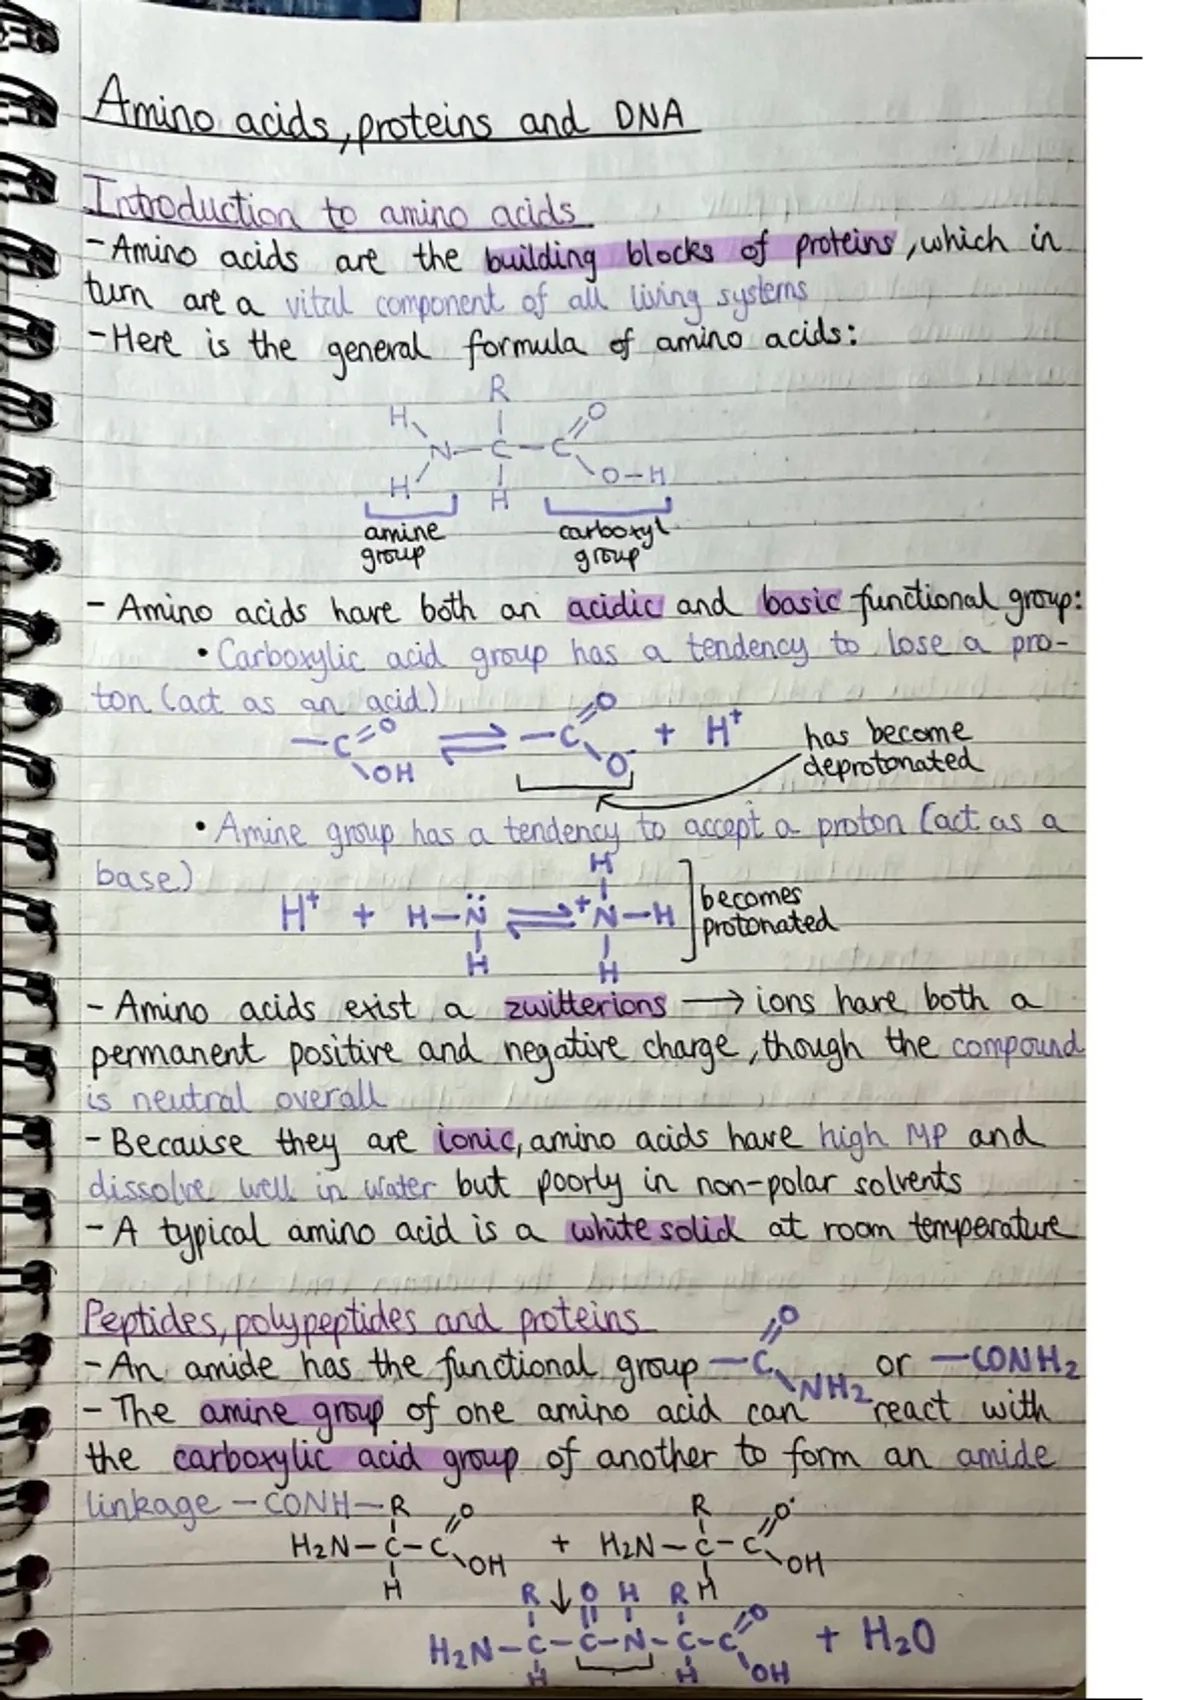 Amino acids, proteins and DNA
Introduction to amino acids
- Amino acids are the building blocks of proteins, which in
turn are a vital component of all living systems
- Here is the general formula of amino acids:
R
H O
N-C-C
H H O-H
amine carboxyl
group group
- Amino acids have both an acidic and basic functional group:
• Carboxylic acid group has a tendency to lose a pro-
ton (act as an acid)
-C=O OH ⇌ -C=O O⁻ + H⁺ has become
deprotonated
• Amine group has a tendency to accept a proton (act as a
base)
H
H⁺ + H-N̈ ⇌ ⁺N-H becomes
protonated
H H
- Amino acids exist a zwitterions → ions have both a
permanent positive and negative charge, though the compound
is neutral overall
- Because they are ionic, amino acids have high MP and
dissolve well in water but poorly in non-polar solvents
- A typical amino acid is a white solid at room temperature
Peptides, polypeptides and proteins
- An amide has the functional group -C=O NH₂ or -CONH₂
- The amine group of one amino acid can react with
the carboxylic acid group of another to form an amide
linkage -CONH-
R O R O
H₂N-C-C OH + H₂N-C-C OH
H H
↓
R O H R O
H₂N-C-C-N-C-C OH + H₂O
H H